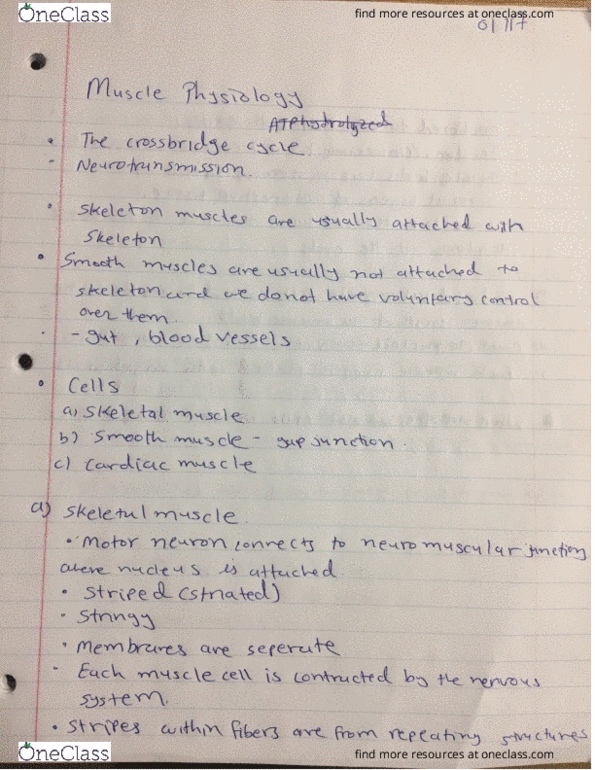 OneClass
find more resources at oneclass.com
Muscle Physiology
ATP hydrolyzed
• The crossbridge cycle
- Neurotransmission.
• Skeleton muscles are usually attached with
Skeleton
• Smooth muscles are usually not attached to
skeleton and we do not have voluntary control
over them.
- gut, blood vessels
• Cells
a) Skeletal muscle
b) Smooth muscle - gap junction.
c) Cardiac muscle
a) Skeletal muscle
• Motor neuron connects to neuromuscular junction
where nucleus is attached
• Striped (striated)
• Stringy
• Membranes are seperate
- Each muscle cell is contracted by the nervous
system.
• Stripes within fibers are from repeating structures
OneClass
find more resources at oneclass.com